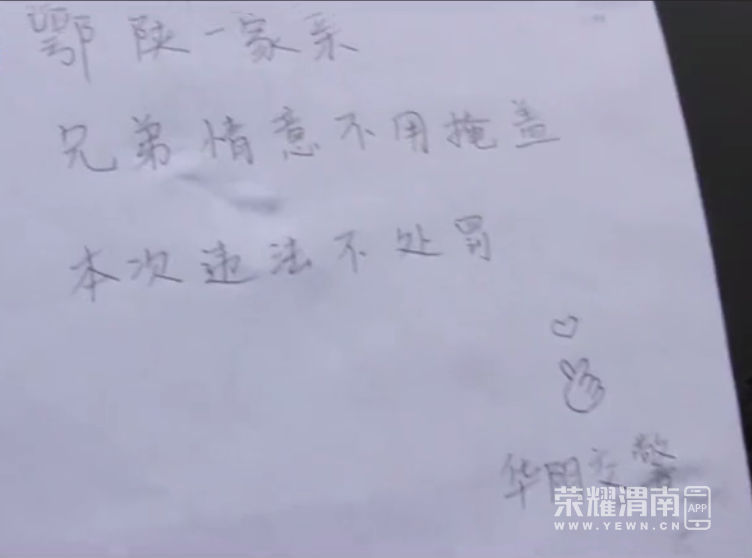 鄂陕一家亲
兄弟情意不用掩盖
本次违法不处罚
华阴交警
荣耀渭南 APP
WWW.YEWN.CN